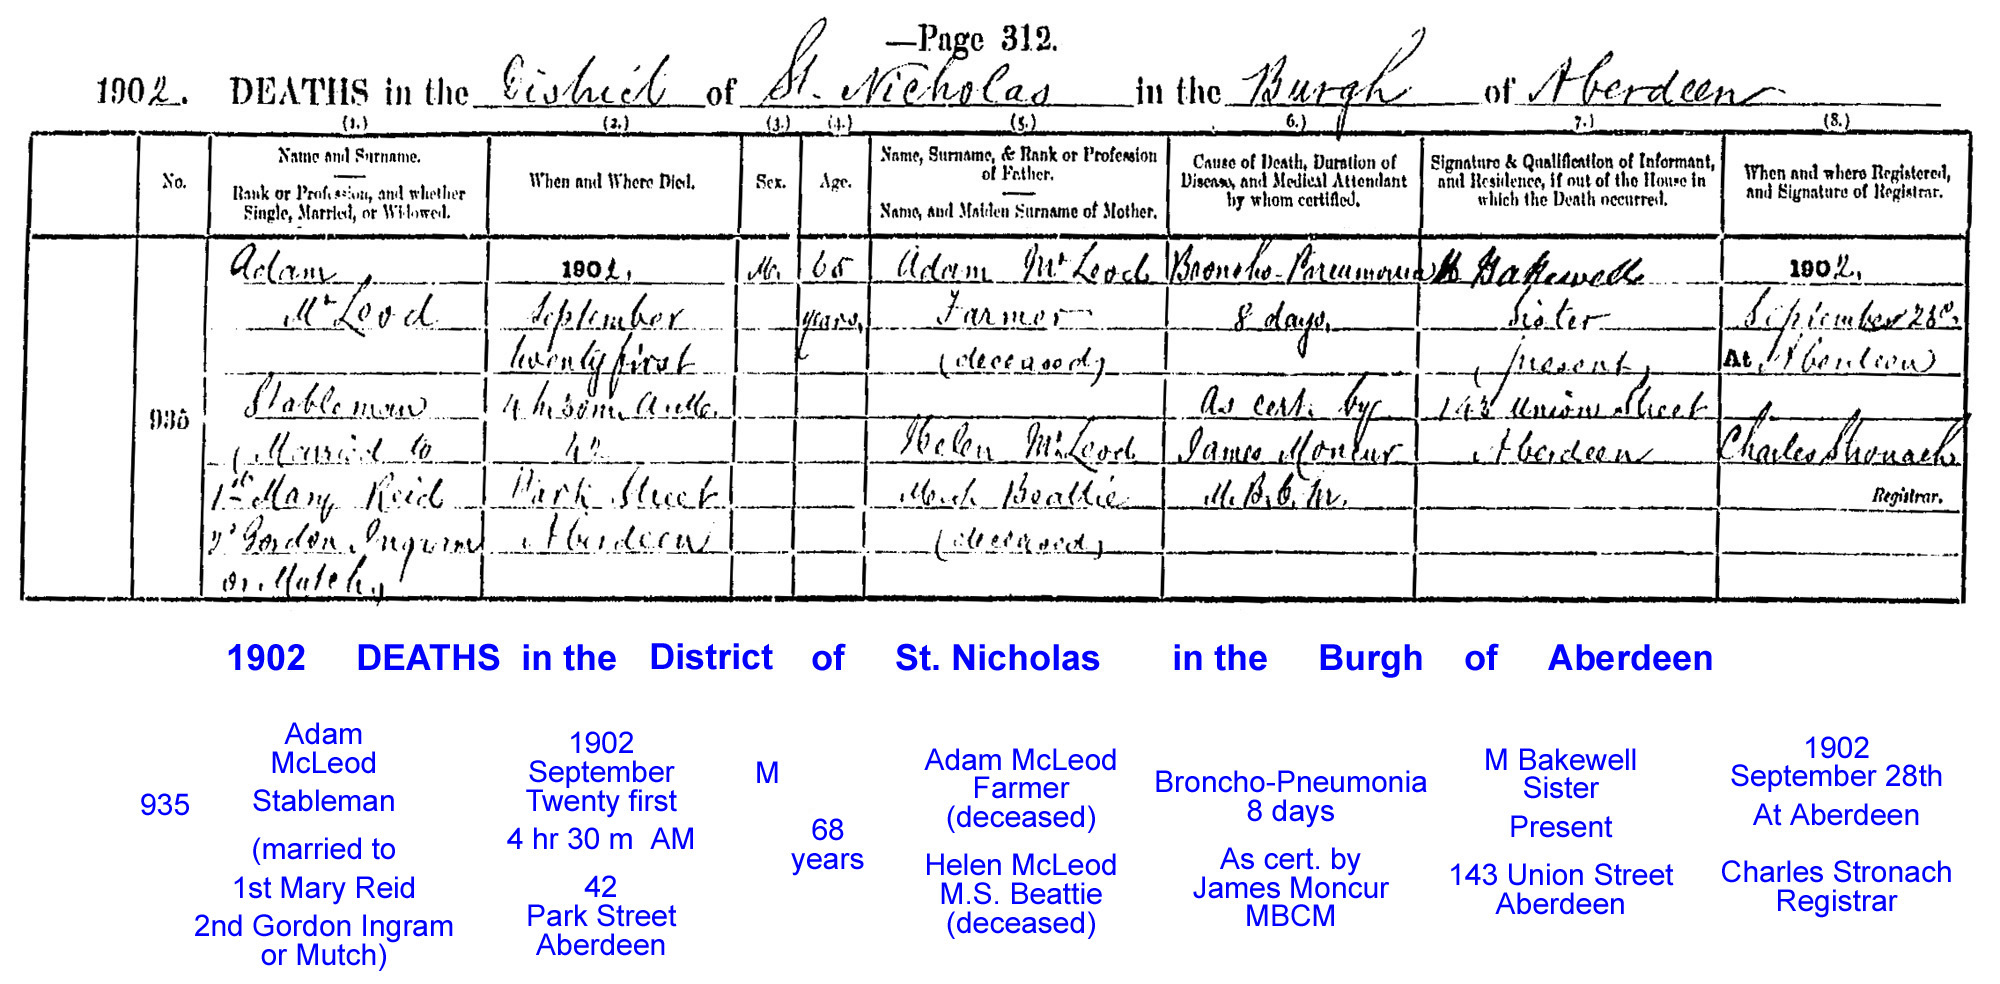 —Page 312.
1902. DEATHS in the District of St. Nicholas in the Burgh of Aberdeen
(1.) (2.) (3.) (4.) (5.) 6.) 7.) (8.)
No.
Name and Surname.
Rank or Profession, and whether
Single, Married, or Widowed.
When and Where Died.
Sex.
Age.
Name, Surname, & Rank or Profession
of Father.
Name, and Maiden Surname of Mother.
Cause of Death, Duration of
Disease, and Medical Attendant
by whom certified.
Signature & Qualification of Informant,
and Residence, if out of the House in
which the Death occurred.
When and where Registered,
and Signature of Registrar.
935
Adam
McLeod
Stableman
(Married to
1st Mary Reid
2d Gordon Ingram
or Mutch)
1902.
September
twenty first
4 h. 30 m. A.M.
42
Park Street
Aberdeen
M.
years.
Adam McLeod
Farmer
(deceased)
Helen McLeod
M.S. Beattie
(deceased)
Broncho-Pneumonia
8 days.
As cert. by
James Moncur
M.B.C.M.
M Bakewell
Sister
(present)
143 Union Street
Aberdeen
1902.
September
At Aberdeen
Charles Stronach
Registrar.
1902 DEATHS in the District of St. Nicholas in the Burgh of Aberdeen
935
Adam
McLeod
Stableman
(married to
1st Mary Reid
2nd Gordon Ingram
or Mutch)
1902
September
Twenty first
4 hr 30 m AM
42
Park Street
Aberdeen
M
68
years
Adam McLeod
Farmer
(deceased)
Helen McLeod
M.S. Beattie
(deceased)
Broncho-Pneumonia
8 days
As cert. by
James Moncur
MBCM
M Bakewell
Sister
Present
143 Union Street
Aberdeen
1902
September 28th
At Aberdeen
Charles Stronach
Registrar